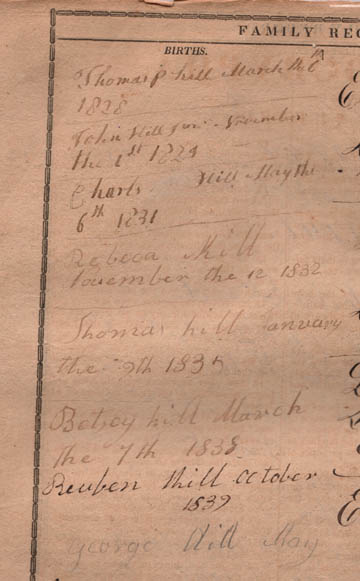 FAMILY REC
BIRTHS.
Thomas P hill March the 6
1828
John Hill Jur November
the 1st 1829
Charls Hill May the
6th 1831
Rebeca Hill
November the 12 1832
Thomas hill January
the 9th 1835
Betsey hill March
the 7th 1838
Reuben Hill October
1839
George Hill May